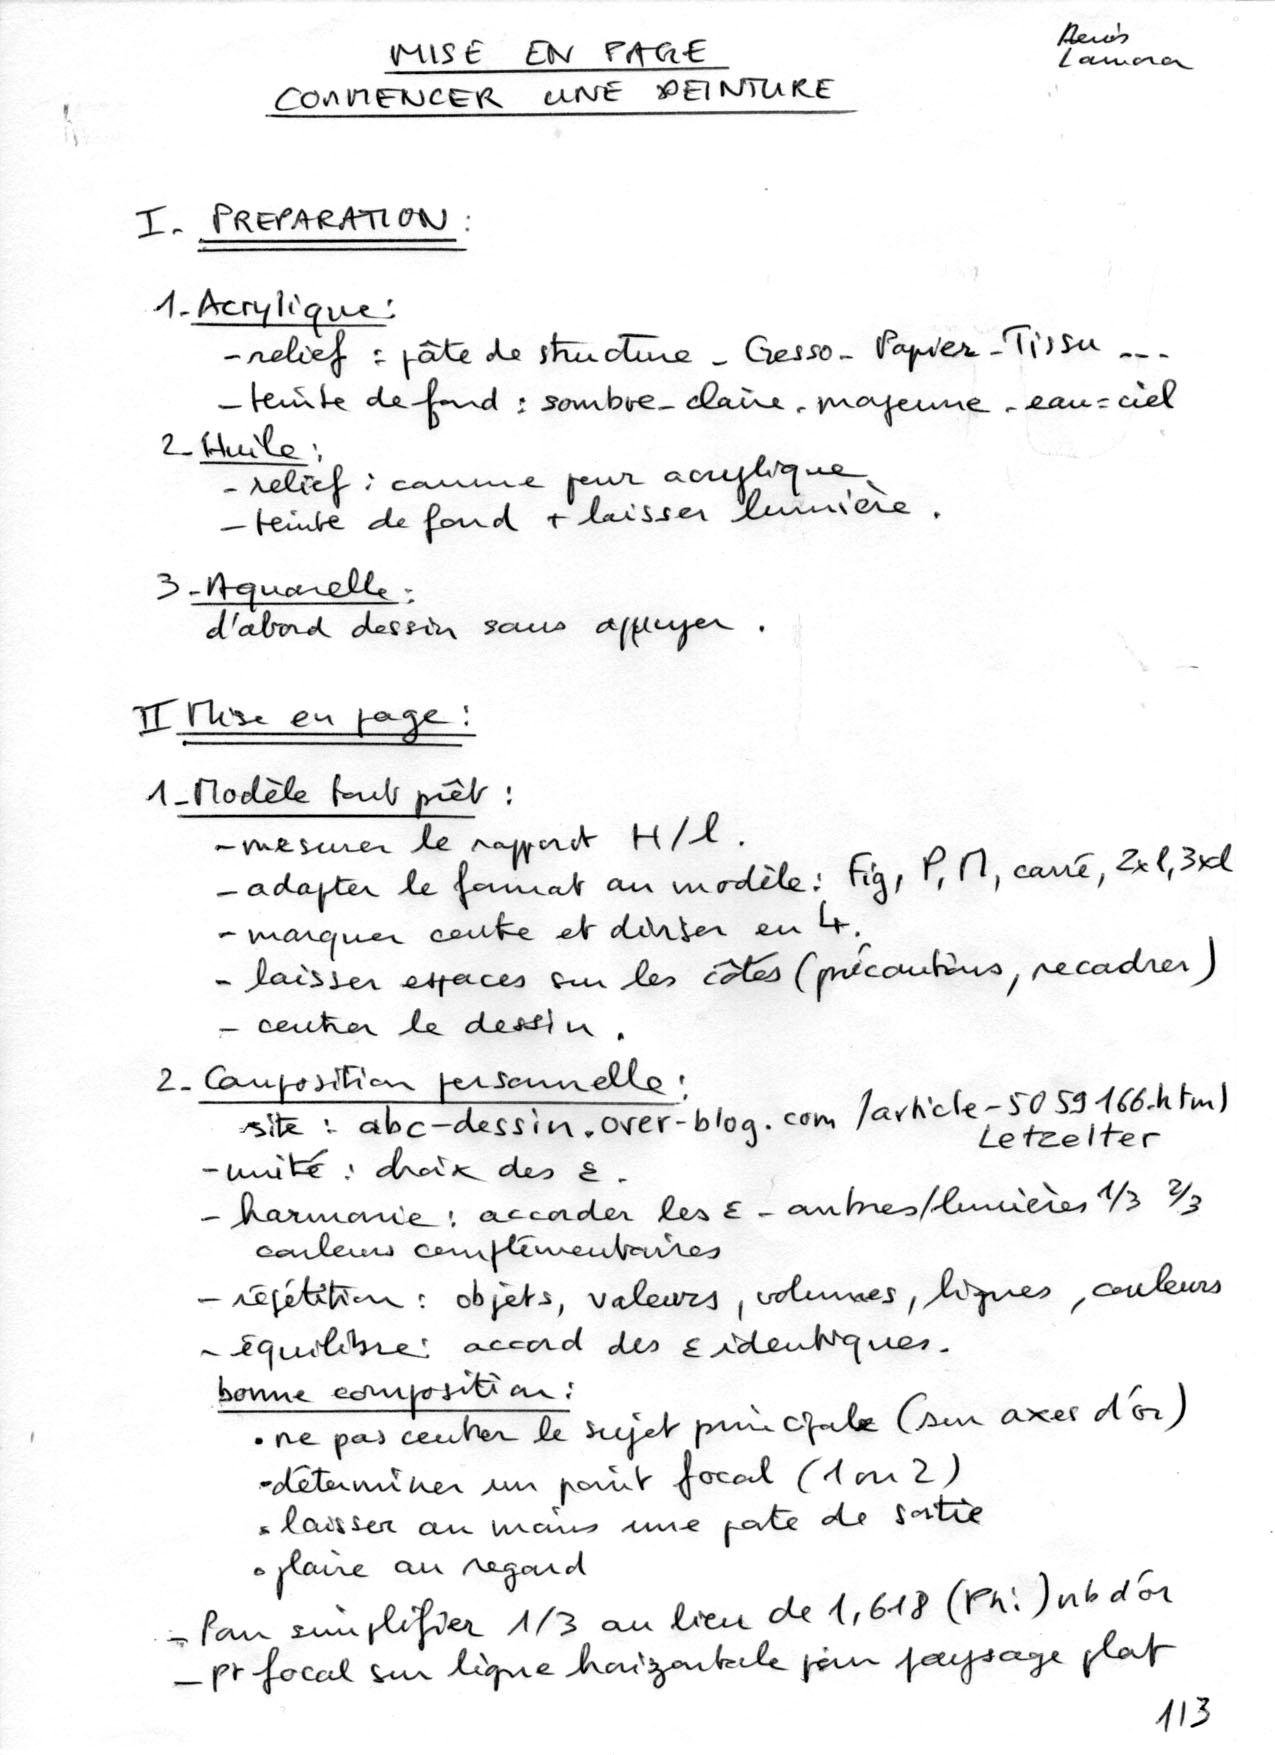 MISE EN PAGE
COMMENCER UNE PEINTURE
Denis
Lamora
I. PREPARATION :
1- Acrylique :
- relief : pâte de structure - Gesso - Papier - Tissu ...
- teinte de fond : sombre - claire - moyenne - eau = ciel
2- Huile :
- relief : comme pour acrylique
- teinte de fond + laisser lumière .
3 - Aquarelle :
d'abord dessin sans appuyer .
II Mise en page :
1- Modèle tout prêt :
- mesurer le rapport H/l .
- adapter le format au modèle : Fig, P, M, carré, 2xl, 3xl
- marquer centre et diviser en 4.
- laisser espaces sur les côtés (précautions, recadrer)
- centrer le dessin .
2- Composition personnelle :
site : abc-dessin.over-blog.com /article-5059166.html
Letzelter
- unité : choix des ε .
- harmonie : accorder les ε - ombres/lumières 1/3 2/3
couleurs complémentaires
- répétition : objets, valeurs, volumes, lignes, couleurs
- équilibre : accord des ε identiques.
bonne composition :
• ne pas centrer le sujet principale (sur axes d'or)
• déterminer un point focal (1 ou 2)
• laisser au moins une porte de sortie
• plaire au regard
- Pour simplifier 1/3 au lieu de 1,618 (Phi) nb d'or
- pt focal sur ligne horizontale pour paysage plat
1/3